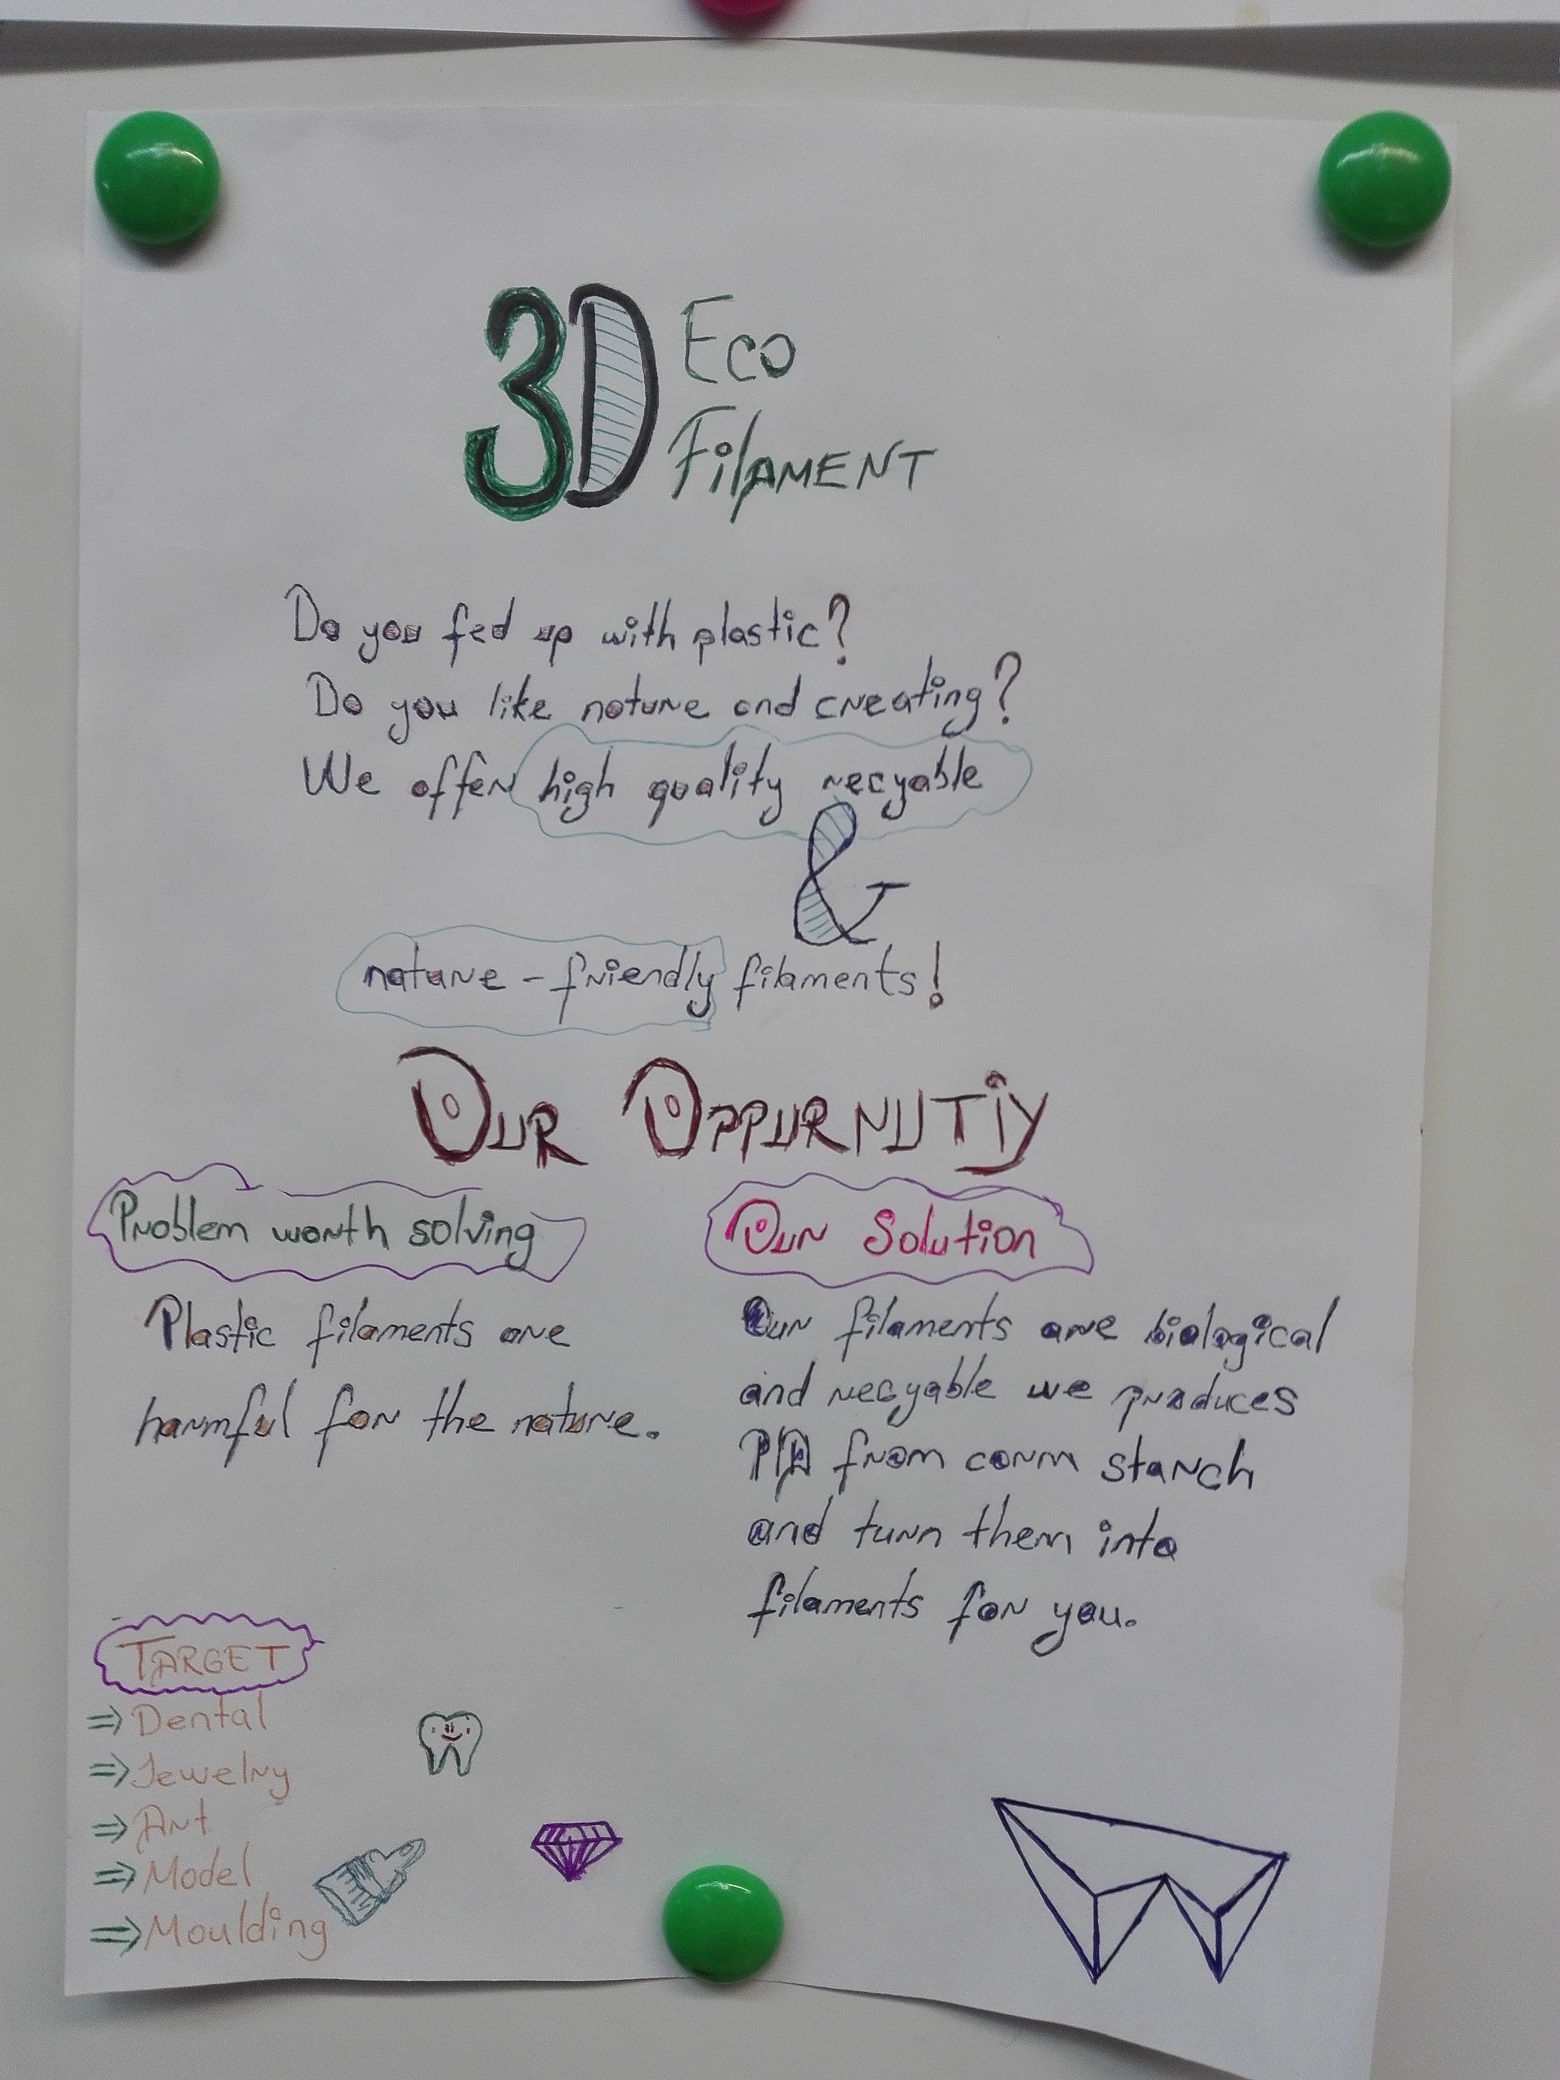 3D Eco
Filament
Do you fed up with plastic?
Do you like nature and creating?
We offer high quality recyable
&
nature - friendly filaments!
Our Oppurnutiy
Problem worth solving
Plastic filaments are
harmful for the nature.
Our Solution
Our filaments are biological
and recyable we produces
from cornn starch
and turn them into
filaments for you.
TARGET
⇒ Dental
⇒ Jewelry
⇒ Art
⇒ Model
⇒ Moulding